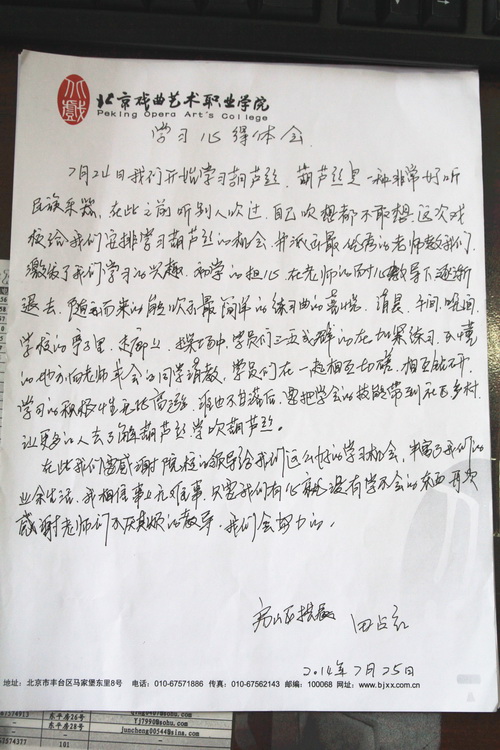 北戏
北京戏曲艺术职业学院
Peking Opera Art's College
学习心得体会
7月24日我们开始学习葫芦丝,葫芦丝是一种非常好听
民族乐器,在此之前听别人吹过,自己吹想都不敢想。这次戏
校给我们安排学习葫芦丝的机会,并派了最优秀的老师教我们
激发了我们学习的兴趣,初学的担心在老师的耐心教导下逐渐
退去,随之而来的能吹了最简单的练习曲的喜悦,清晨、午间、晚间
学校的亭子里、走廊上、操场中,学员们三五成群的在加紧练习,不懂
的地方向老师或会的同学请教,学员们在一起相互切磋,相互
学习的积极性高涨,班也不甘落后,要把学会的技能带到社区乡村,
让更多的人去了解葫芦丝,学吹葫芦丝。
在此我们应感谢院校的领导给我们这么好的学习机会,丰富了我们的
业余生活,我相信事上无难事,只要我们有心就没有学不会的东西,再次
感谢老师们不厌其烦的教导,我们会努力的。
房山区 田占
2014年7月25日
地址:北京市丰台区马家堡东里8号 电话:010-67571886 传真:010-67562143 邮编:100068 网址:www.bjxx.com.cn
东平房26号 Yj7990@sohu.com
东平房26号 juncheng0054@sina.com
101